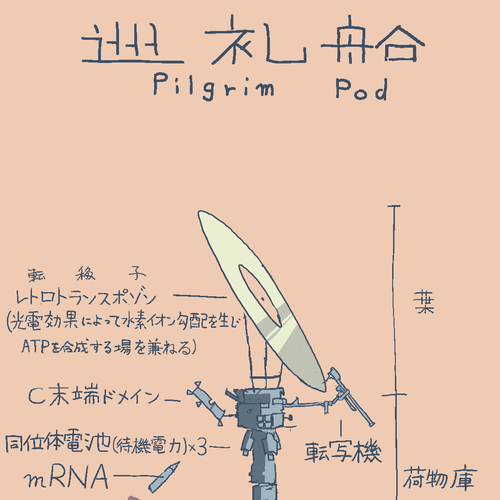 巡礼船
Pilgrim Pod
転移子
レトロトランスポゾン
(光電効果によって水素イオン勾配を生じ
ATPを合成する場を兼ねる)
葉
C末端ドメイン
同位体電池(待機電力)×3
転写機
mRNA
荷物庫